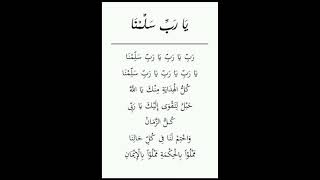 يَا رَبِّ سَلِّمْنَا
رَبِّ يَا رَبِّ يَا رَبِّ سَلِّمْنَا
يَا رَبِّ يَا رَبِّ يَا رَبِّ سَلِّمْنَا
كُلُّ الْهِدَايَةِ مِنْكَ يَا اللهُ
حَبْلُ لِتَقْوَى إِلَيْكَ يَا رَبِّي
كُلُّ الزَّمَانُ
وَاخْتِمْ لَنَا فِي كُلِّ حَالِنَا
مَمْلُوْأً بِالْحِكْمَةِ مَمْلُوْأً بِالْإِيْمَانِ